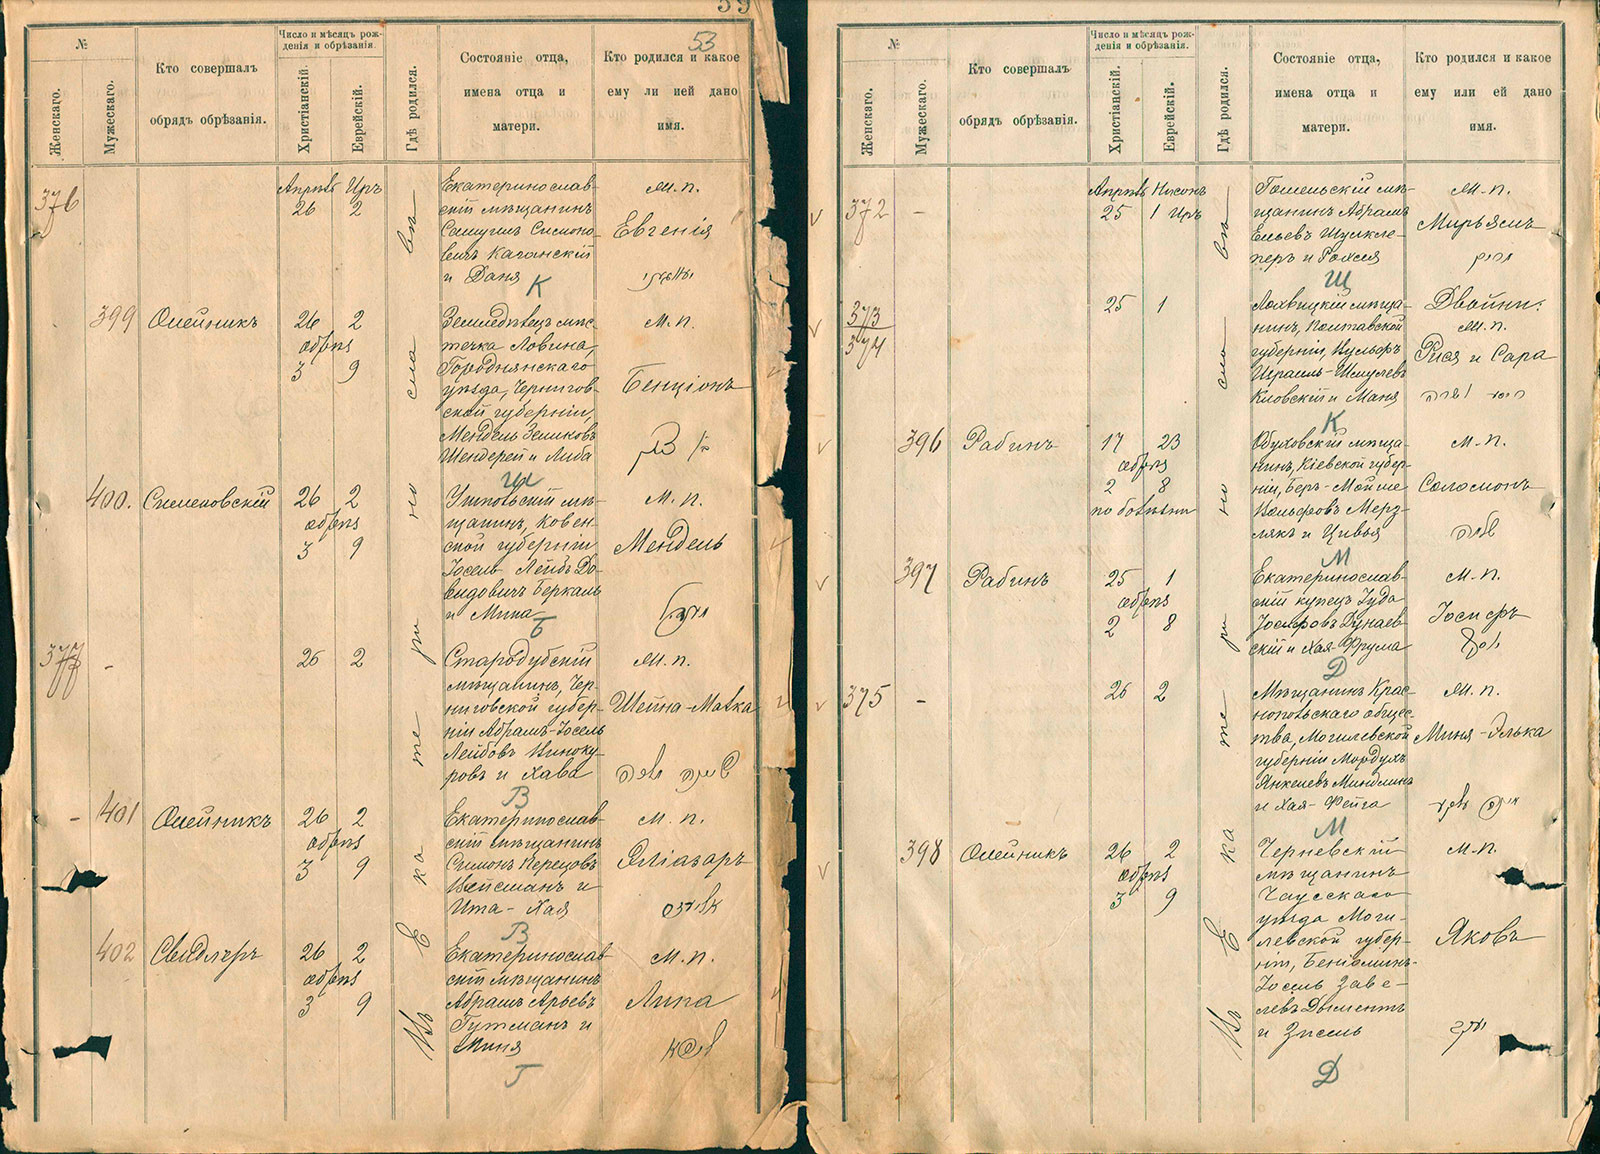 53
№
Женскаго.
Мужескаго.
Кто совершалъ
обрядъ обрѣзанія.
Число и мѣсяцъ рож-
денія и обрѣзанія.
Христіанскій.
Еврейскій.
Гдѣ родился.
Состояніе отца,
имена отца и
матери.
Кто родился и какое
ему ли ней дано
имя.
Въ Екатеринославѣ
376
Апрѣль Иръ
26 2
Екатеринослав-
скій мѣщанинъ
Самуилъ Симоно-
вичъ Каганскій
и Даня
К
м. п.
Евгенія
399
Олейникъ
26 2
обрѣз
3 9
Земледѣлецъ мѣс-
течка Ловина,
Городнянскаго
уѣзда, Чернигов-
ской губерніи,
Мендель Зеликовъ
Шендерей и Либа
Ш
м. п.
Бенціонъ
400.
26 2
обрѣз
3 9
щанинъ, Ковен-
ской губерніи
Іосель Лейбъ До-
видовичъ Беркаль
и Мина
Б
м. п.
Мендель
377 -
26 2
Стародубскій
мѣщанинъ, Чер-
ниговской губер-
ніи Абрамъ-Іосель
Лейбовъ Виноку-
ровъ и Хава
В
м. п.
Шейна-Матка
שיינה
- 401
Олейникъ
26 2
обрѣз
3 9
Екатеринослав-
скій мѣщанинъ
Симонъ Перецовъ
Вейсманъ и
Ита-Хая
В
м. п.
Эліазаръ
402
Свидлеръ
26 2
обрѣз
3 9
Екатеринослав-
скій мѣщанинъ
Абрамъ Арьевъ
Гутманъ и
Миня
Г
м. п.
Липа
№
Женскаго.
Мужескаго.
Кто совершалъ
обрядъ обрѣзанія.
Число и мѣсяцъ рож-
денія и обрѣзанія.
Христіанскій.
Еврейскій.
Гдѣ родился.
Состояніе отца,
имена отца и
матери.
Кто родился и какое
ему или ей дано
имя.
Въ Екатеринославѣ
372 -
Апрѣль Нисонъ
25 1 Иръ
Гомельскій мѣ-
щанинъ Абрамъ
Ельевъ
Ш
м. п.
Мирьямъ
מרים
373
374
25 1
Лохвицкій мѣща-
нинъ, Полтавской
губерніи, Вульфъ
Израиль-Шмулевъ
Кловскій и Маня
К
Двойни.
м. п.
Рися и Сара
396
Рабинъ
17 23
обрѣз
2 8
по болѣзни
Обуховскій мѣща-
нинъ, Кіевской губер-
ніи, Беръ-Мойше
Вольфовъ Мерз-
лякъ и Цивья
М
м. п.
Соломонъ
שלמה
397
Рабинъ
25 1
обрѣз
2 8
Екатеринослав-
скій купецъ Іуда
Іосифовъ Дунаев-
скій и Хая-Фрума
Д
м. п.
Іосифъ
יוסף
375 -
26 2
Мѣщанинъ Крас-
нопольскаго общес-
тва, Могилевской
губерніи Мордухъ
Янкелевъ Миндлинъ
и Хая-Фейга
М
м. п.
Миня-Элька
398
Олейникъ
26 2
обрѣз
3 9
Черневскій
мѣщанинъ
Чаусскаго
уѣзда Моги-
левской губер-
ніи, Беніаминъ-
Іосель Заве-
левъ Дыментъ
и Зисель
Д
м. п.
Яковъ
יעקב